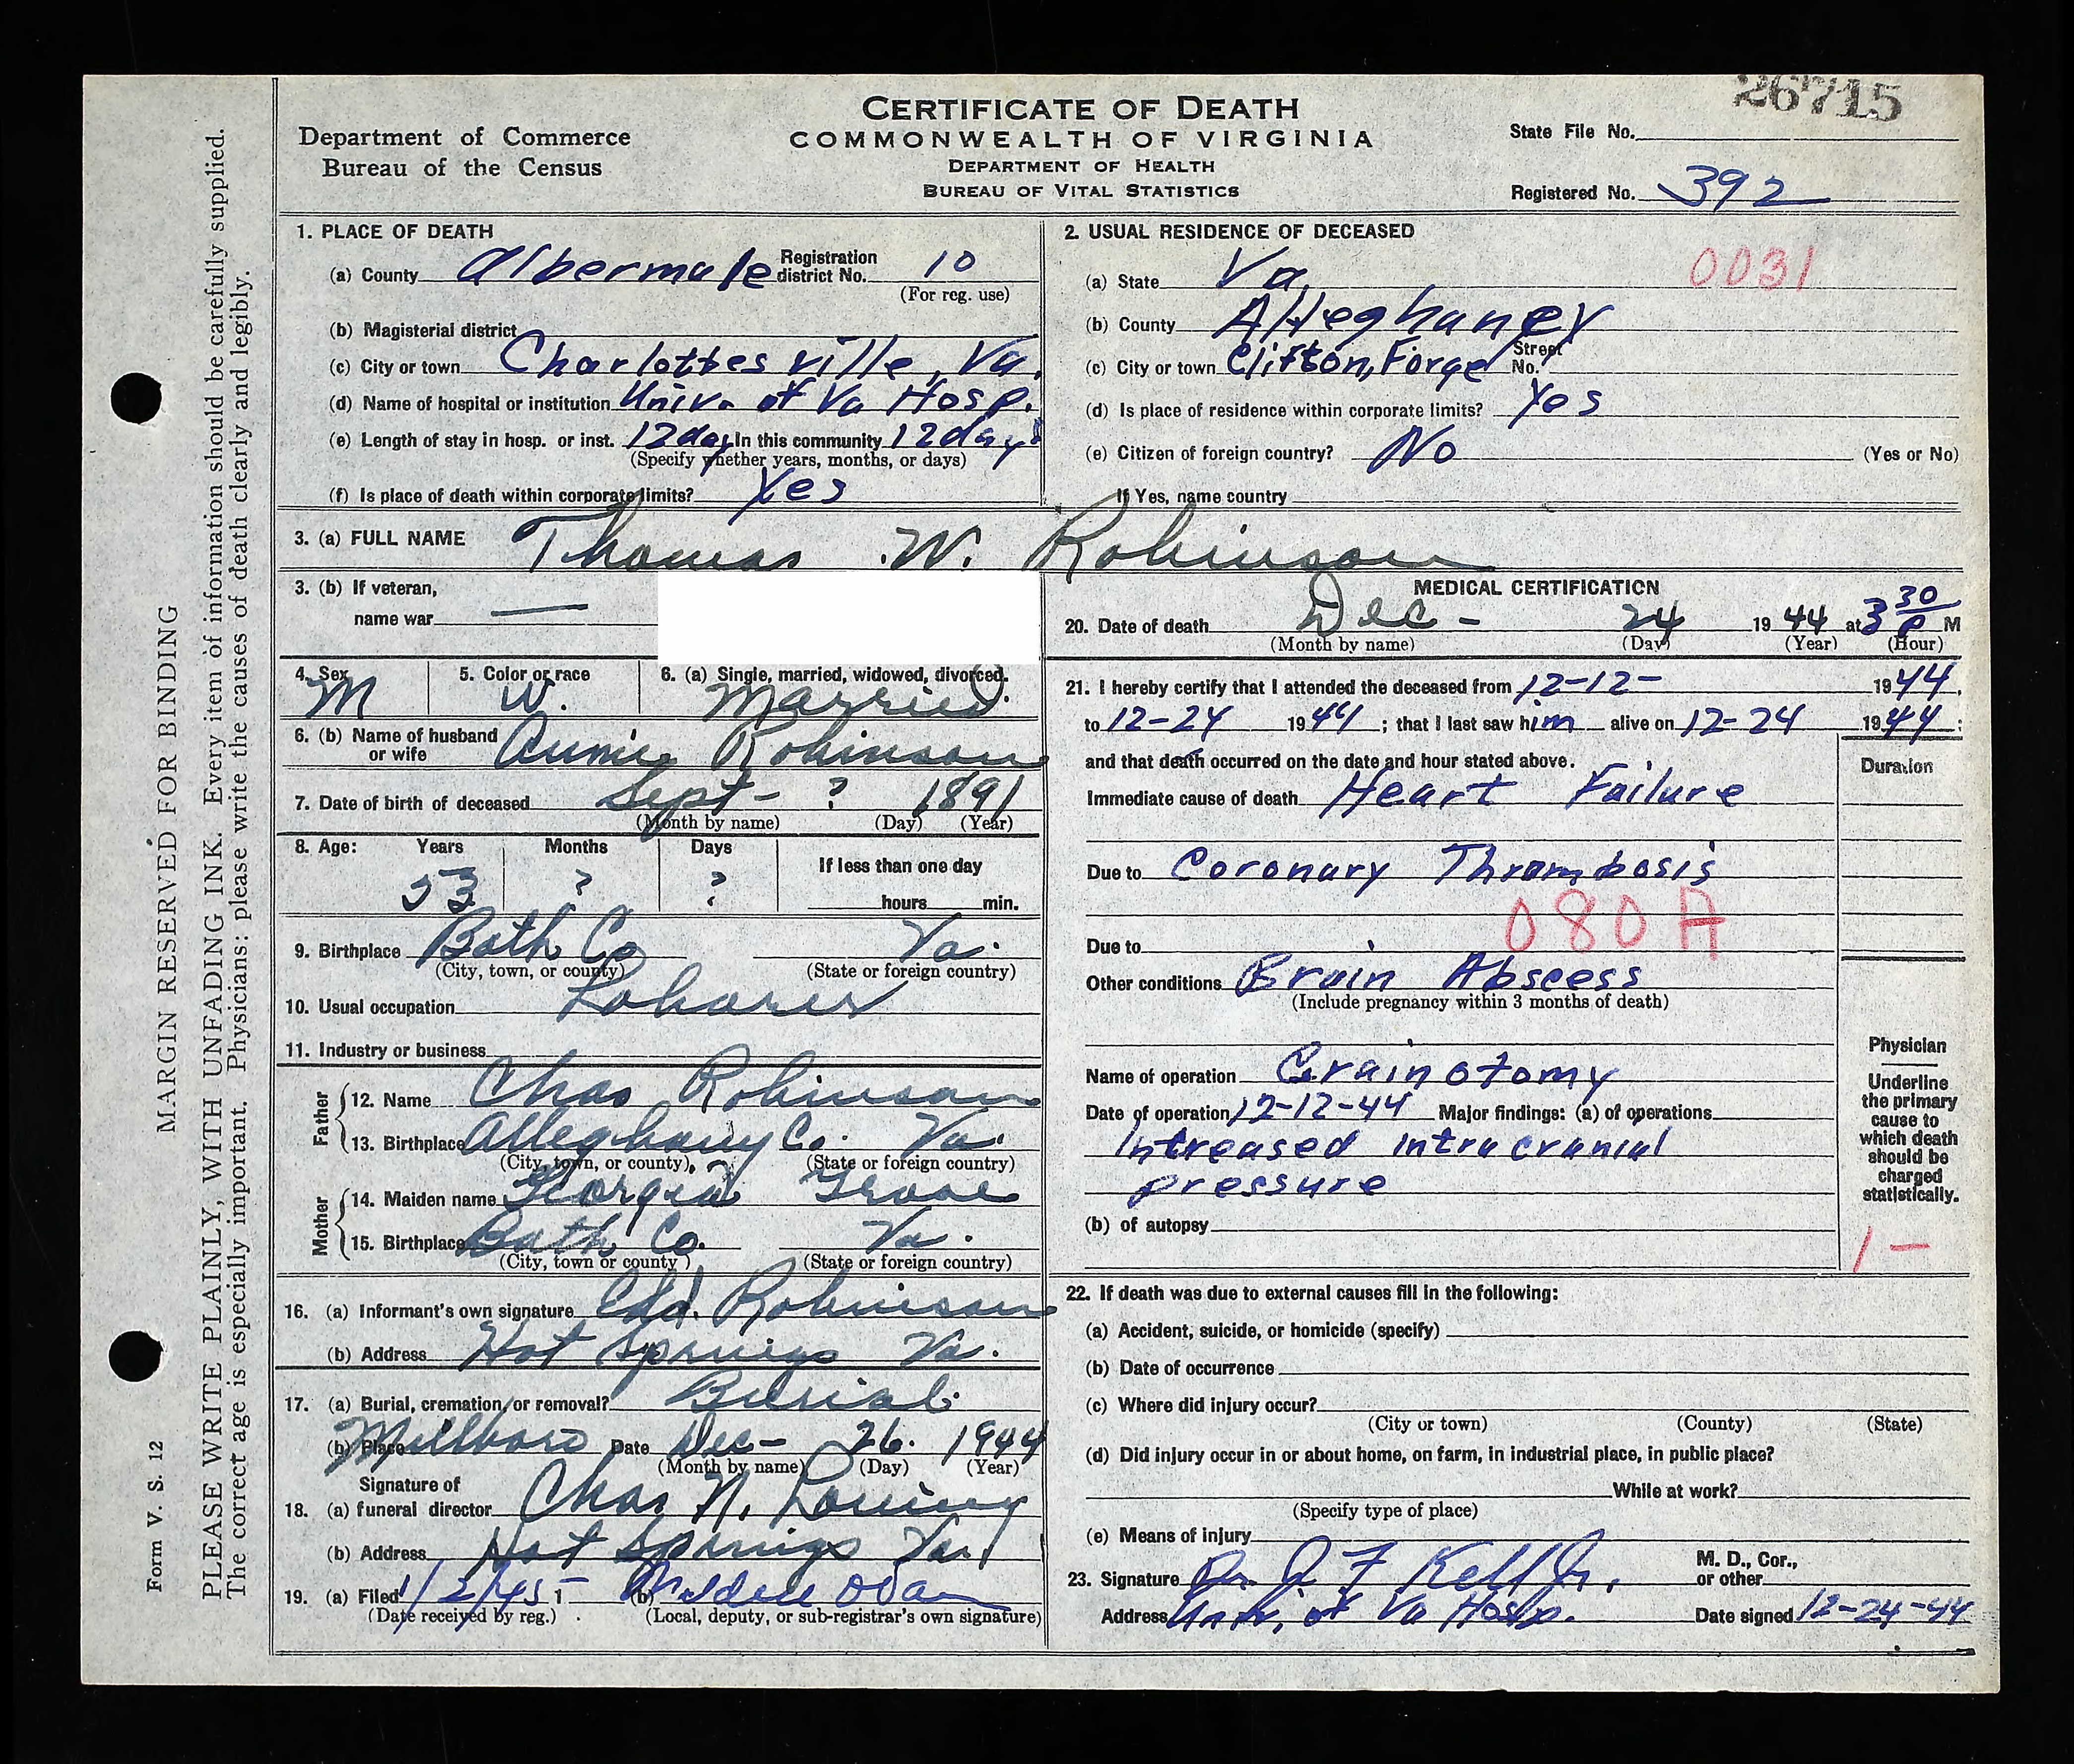 26715
CERTIFICATE OF DEATH
COMMONWEALTH OF VIRGINIA
DEPARTMENT OF HEALTH
BUREAU OF VITAL STATISTICS
Department of Commerce
Bureau of the Census
State File No.
Registered No. 392
1. PLACE OF DEATH
(a) County Albermale Registration district No. 10
(For reg. use)
(b) Magisterial district
(c) City or town Charlottesville, Va.
(d) Name of hospital or institution Univ. of Va Hosp.
(e) Length of stay in hosp. or inst. 12 days In this community 12 days
(Specify whether years, months, or days)
(f) Is place of death within corporate limits? Yes
2. USUAL RESIDENCE OF DECEASED
0031
(a) State Va.
(b) County Alleghaney
(c) City or town Clifton, Forge Street No.
(d) Is place of residence within corporate limits? Yes
(e) Citizen of foreign country? No (Yes or No)
If Yes, name country
3. (a) FULL NAME Thomas W. Robinson
3. (b) If veteran,
name war —
4. Sex M
5. Color or race W.
6. (a) Single, married, widowed, divorced. Married.
6. (b) Name of husband or wife Annie Robinson
7. Date of birth of deceased Sept - ? 1891
(Month by name) (Day) (Year)
8. Age: Years Months Days If less than one day
53 ? ? hours min.
9. Birthplace Bath Co Va.
(City, town, or county) (State or foreign country)
10. Usual occupation Labarer
11. Industry or business
Father
12. Name Chas Robinson
13. Birthplace Alleghany Co. Va.
(City, town, or county) (State or foreign country)
Mother
14. Maiden name Georgia
15. Birthplace Bath Co. Va.
(City, town or county) (State or foreign country)
16. (a) Informant's own signature Edd. Robinson
(b) Address Hot Springs Va.
17. (a) Burial, cremation, or removal? Burial
(b) Place Millboro Date Dec - 26. 1944
(Month by name) (Day) (Year)
18. (a) Signature of funeral director Chas N.
(b) Address Hot Springs Va.
19. (a) Filed 1/2/45 1 (b)
(Date received by reg.) (Local, deputy, or sub-registrar's own signature)
MEDICAL CERTIFICATION
20. Date of death Dec - 24 1944 at 3 30 P M
(Month by name) (Day) (Year) (Hour)
21. I hereby certify that I attended the deceased from 12-12- 1944,
to 12-24 1944; that I last saw him alive on 12-24 1944;
and that death occurred on the date and hour stated above.
Duration
Immediate cause of death Heart Failure
Due to Coronary Thrombosis
080 A
Due to
Other conditions Brain Abscess
(Include pregnancy within 3 months of death)
Name of operation Crainotomy
Date of operation 12-12-44 Major findings: (a) of operations
Intreased intracranial
pressure
(b) of autopsy
Physician
Underline
the primary
cause to
which death
should be
charged
statistically.
1 -
22. If death was due to external causes fill in the following:
(a) Accident, suicide, or homicide (specify)
(b) Date of occurrence
(c) Where did injury occur?
(City or town) (County) (State)
(d) Did injury occur in or about home, on farm, in industrial place, in public place?
While at work?
(Specify type of place)
(e) Means of injury
23. Signature Dr. J F Kell Jr. M. D., Cor., or other
Address Univ. of Va Hosp. Date signed 12-24-44
MARGIN RESERVED FOR BINDING
PLEASE WRITE PLAINLY, WITH UNFADING INK. Every item of information should be carefully supplied.
The correct age is especially important. Physicians: please write the causes of death clearly and legibly.
Form V. S. 12